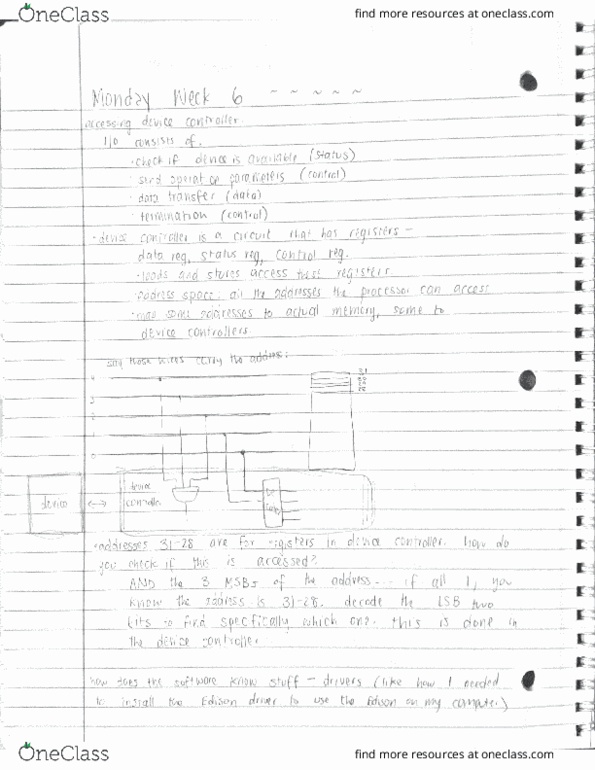 OneClass
find more resources at oneclass.com
Monday Week 6 ~ ~ ~ ~ ~
accessing device controller.
I/O consists of.
· check if device is available (status)
· send operat op parameters (control)
· data transfer (data)
· termination (control)
· device controller is a circuit that has registers –
data reg, status reg, control reg.
· loads and stores access these registers
· address space: all the addresses the processor can access
· map some addresses to actual memory, some to
device controllers
say these wires carry the address:
4
31
3
28
2
1
0
device
device
controller
· addresses 31-28 are for registers in device controller. how do
you check if this is accessed?
AND the 3 MSBs of the address... if all 1, you
know the address is 31-28. decode the LSB two
bits to find specifically which one. this is done in
the device controller
how does the software know stuff – drivers (like how I needed
to install the Edison driver to use the Edison on my computer)
OneClass
find more resources at oneclass.com